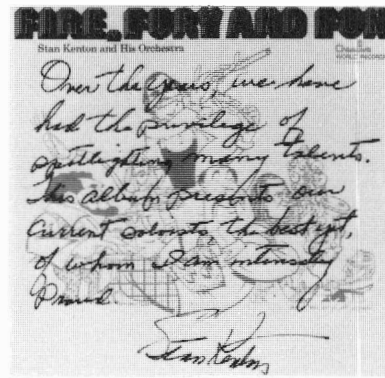 FIRE, FURY AND FUN
Stan Kenton and His Orchestra
Creative
WORLD RECORDS
Over the years, we have
had the privilege of
spotlighting many talents.
This album presents our
current soloists, the best yet,
of whom I am intensely
Proud.
Stan Kenton